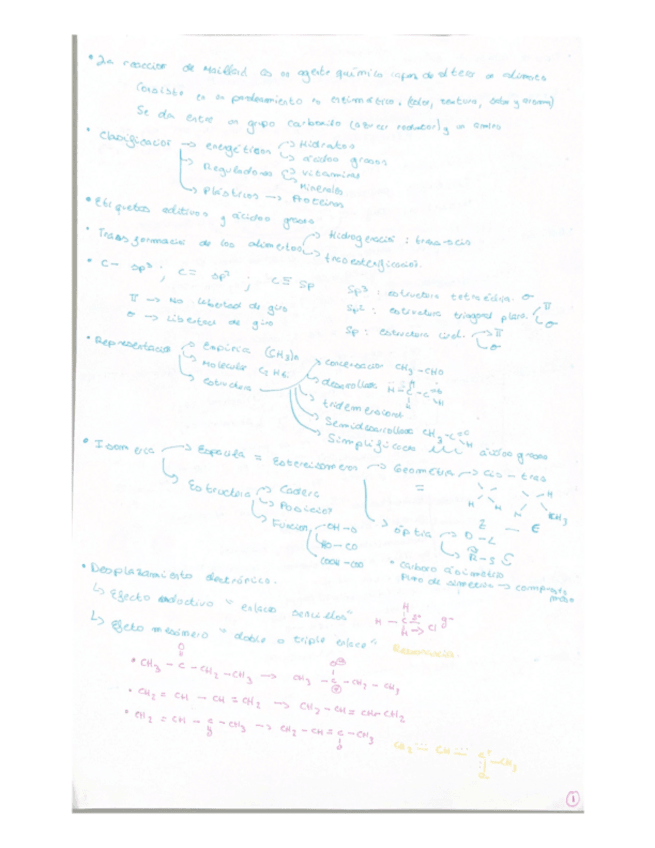 • La reacción de Maillard es un agente químico capaz de alterar un alimento
Consiste en un pardeamiento no enzimático. (color, textura, sabor y aroma)
Se da entre un grupo carbonilo (azúcar reductor) y un amino
• Clasificación → energéticos → Hidratos
→ ácidos grasos
→ Reguladores → vitaminas
Minerales
→ Plásticos → Proteínas
• Etiquetas aditivos y ácidos grasos
• Transformación de los alimentos → Hidrogenación : trans-cis
→ transesterificación.
• C- sp³ ; C= sp² ; C≡ sp
π → No libertad de giro
σ → Libertad de giro
sp³ : estructura tetraédrica. σ
sp² : estructura trigonal plana. π σ
sp : estructura lineal. → π → σ
• Representación → Empírica (CH₃)n
→ Molecular C₂H₆
→ estructura
→ condensación CH₃ - CHO
→ desarrollada
→ tridimensional
→ Semidesarrollada
→ Simplificada ácidos grasos
• Isomería → Espacial = Estereoisómeros → Geométrica → cis - trans
Z — E
→ óptica → D - L
→ R - S
→ Estructura → Cadena
→ Posición
→ Función → OH - O
CO - CO
COOH - COO
• carbono asimétrico
Plano de simetría →
• Desplazamiento electrónico.
↳ Efecto inductivo "enlaces sencillos"
↳ Efecto mesómero "doble o triple enlace" Resonancia.
• CH₃ - C - CH₂ - CH₃ → CH₃ - C - CH₂ - CH₃
• CH₂ = CH - CH = CH₂ → CH₂ - CH = CH - CH₂
• CH₂ = CH - C - CH₃ → CH₂ - CH = C - CH₃
1